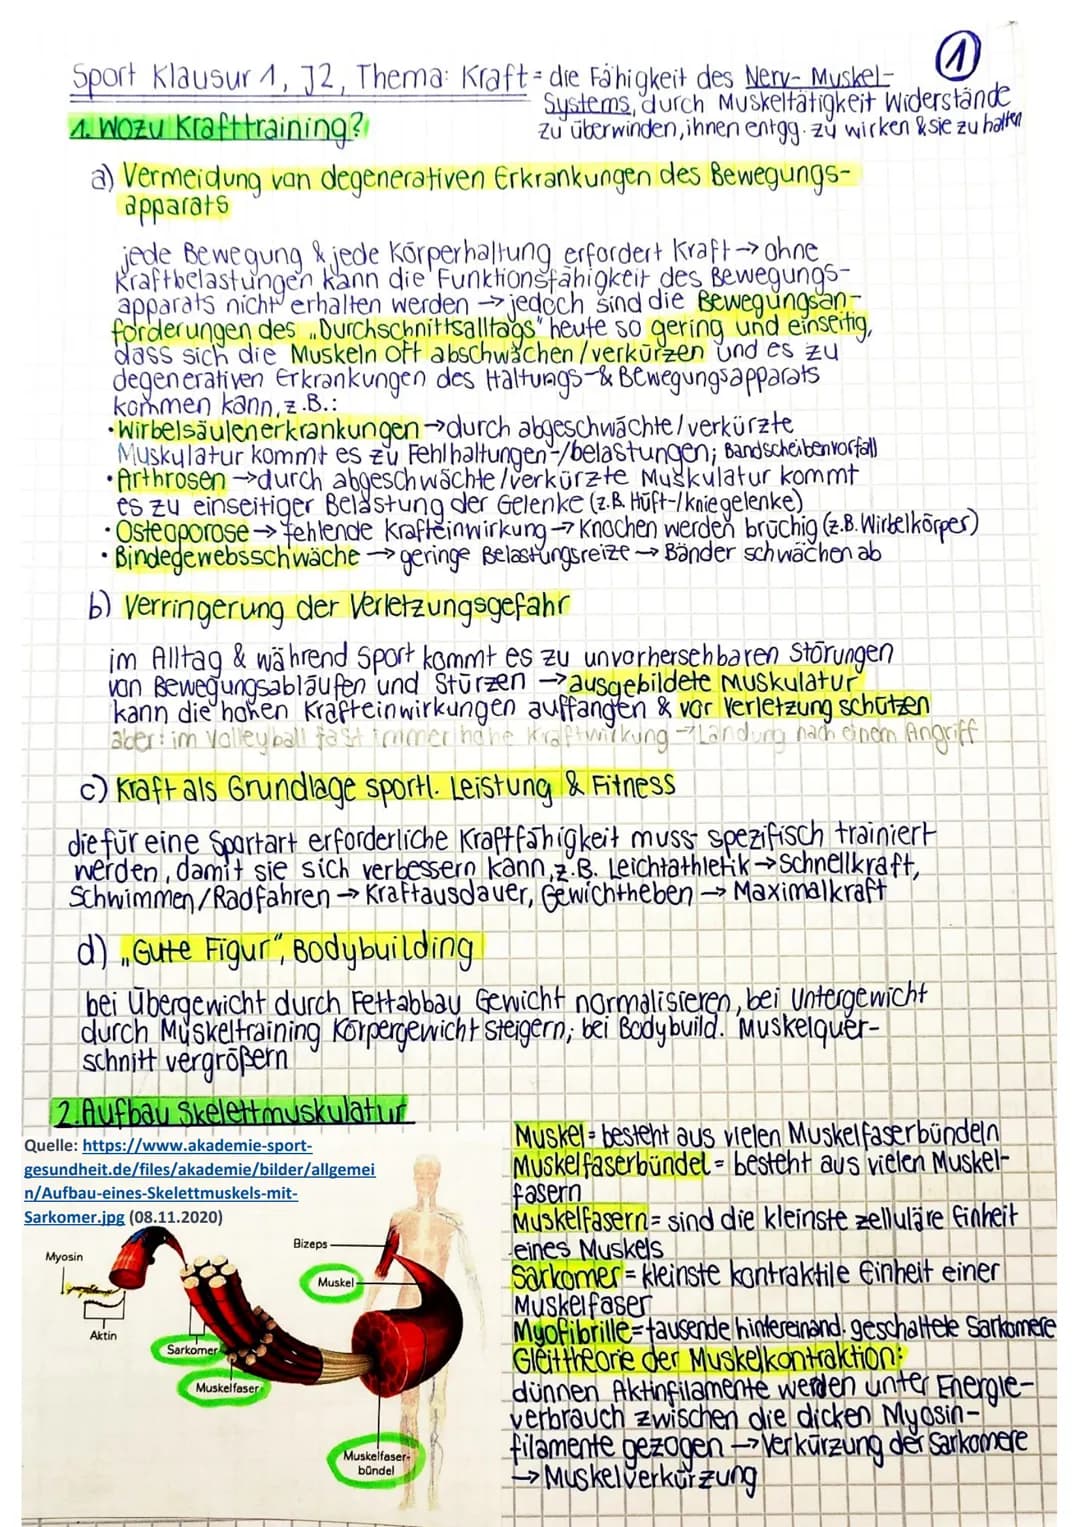 1
Sport Klausur 1, J2, Thema: Kraft = die Fähigkeit des Nerv-Muskel-
Systems, durch Muskeltätigkeit Widerstände
zu überwinden, ihnen entgg. zu wirken & sie zu halten
1. Wozu Krafttraining?
a) Vermeidung von degenerativen Erkrankungen des Bewegungs-
apparats
jede Bewegung & jede Körperhaltung erfordert Kraft → ohne
Kraftbelastungen kann die Funktionsfähigkeit des Bewegungs-
apparats nicht erhalten werden → jedoch sind die Bewegungsan-
forderungen des „Durchschnittsalltags" heute so gering und einseitig,
dass sich die Muskeln oft abschwächen/verkürzen und es zu
degenerativen Erkrankungen des Haltungs-& Bewegungsapparats
kommen kann, z.B.:
• Wirbelsäulenerkrankungen → durch abgeschwächte/verkürzte
Muskulatur kommt es zu Fehlhaltungen-/belastungen; Bandscheibenvorfall
• Arthrosen → durch abgeschwächte/verkürzte Muskulatur kommt
es zu einseitiger Belastung der Gelenke (z.B. Hüft-/Kniegelenke)
• Osteoporose → fehlende Krafteinwirkung → Knochen werden brüchig (z.B. Wirbelkörper)
• Bindegewebsschwäche → geringe Belastungsreize → Bänder schwächen ab
b) Verringerung der Verletzungsgefahr
im Alltag & während Sport kommt es zu unvorhersehbaren Störungen
von Bewegungsabläufen und Stürzen → ausgebildete Muskulatur
kann die hohen Krafteinwirkungen auffangen & vor Verletzung schützen
aber: im Volleyball fast immer hohe Kraftwirkung → Landung nach einem Angriff
c) Kraft als Grundlage sportl. Leistung & Fitness
die für eine Sportart erforderliche Kraftfähigkeit muss spezifisch trainiert
werden, damit sie sich verbessern kann, z.B. Leichtathletik → Schnellkraft,
Schwimmen/Radfahren → Kraftausdauer, Gewichtheben → Maximalkraft
d) „Gute Figur", Bodybuilding
bei Übergewicht durch Fettabbau Gewicht normalisieren, bei Untergewicht
durch Muskeltraining Körpergewicht steigern; bei Bodybuild. Muskelquer-
schnitt vergrößern
2. Aufbau Skelettmuskulatur
Quelle: https://www.akademie-sport-
gesundheit.de/files/akademie/bilder/allgemei
n/Aufbau-eines-Skelettmuskels-mit-
Sarkomer.jpg (08.11.2020)
Myosin
Aktin
Sarkomer
Muskelfaser
Bizeps
Muskel
Muskelfaser-
bündel
Muskel = besteht aus vielen Muskelfaserbündeln
Muskelfaserbündel = besteht aus vielen Muskel-
fasern
Muskelfasern = sind die kleinste zelluläre Einheit
eines Muskels
Sarkomer = kleinste kontraktile Einheit einer
Muskelfaser
Myofibrille = tausende hintereinand. geschaltete Sarkomere
Gleittheorie der Muskelkontraktion:
dünnen Aktinfilamente werden unter Energie-
verbrauch zwischen die dicken Myosin-
filamente gezogen → Verkürzung der Sarkomere
→ Muskelverkürzung